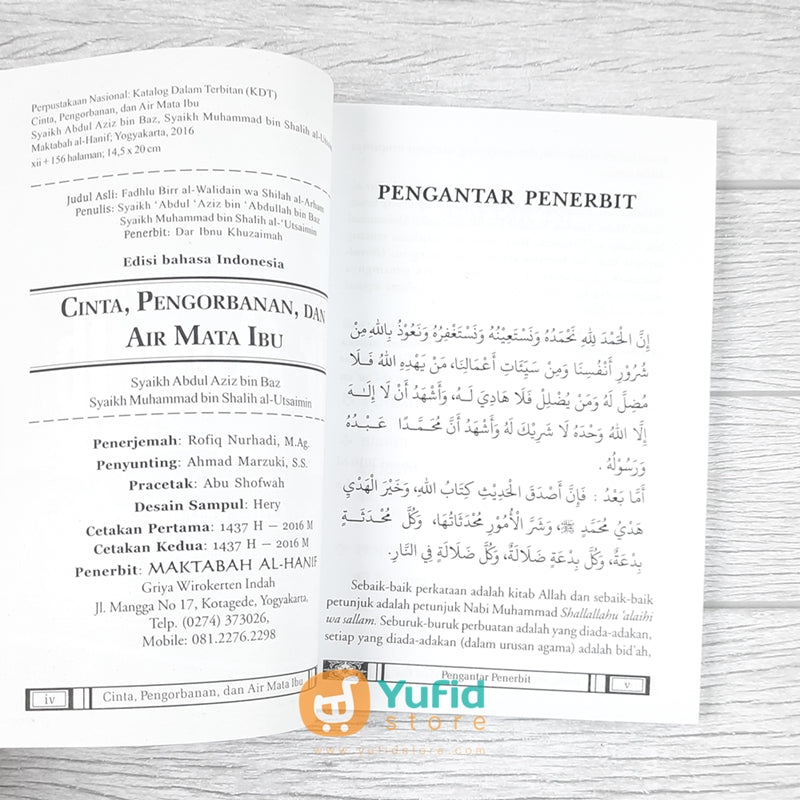 Perpustakaan Nasional: Katalog Dalam Terbitan (KDT)
Cinta, Pengorbanan, dan Air Mata Ibu
Syaikh Abdul Aziz bin Baz, Syaikh Muhammad bin Shalih al-Utsaimin
Maktabah al-Hanif, Yogyakarta, 2016
xii + 156 halaman; 14,5 x 20 cm
Judul Asli: Fadhlu Birr al-Walidain wa Shilah al-Arham
Penulis: Syaikh ‘Abdul ‘Aziz bin ‘Abdullah bin Baz
Syaikh Muhammad bin Shalih al-‘Utsaimin
Penerbit: Dar Ibnu Khuzaimah
Edisi bahasa Indonesia
CINTA, PENGORBANAN, DAN
AIR MATA IBU
Syaikh Abdul Aziz bin Baz
Syaikh Muhammad bin Shalih al-Utsaimin
Penerjemah: Rofiq Nurhadi, M.Ag.
Penyunting: Ahmad Marzuki, S.S.
Pracetak: Abu Shofwah
Desain Sampul: Hery
Cetakan Pertama: 1437 H – 2016 M
Cetakan Kedua: 1437 H – 2016 M
Penerbit: MAKTABAH AL-HANIF
Griya Wirokerten Indah
Jl. Mangga No 17, Kotagede, Yogyakarta,
Telp: (0274) 373026,
Mobile: 081.2276.2298
iv Cinta, Pengorbanan, dan Air Mata Ibu
PENGANTAR PENERBIT
إِنَّ الْحَمْدَ لِلَّهِ نَحْمَدُهُ وَنَسْتَعِينُهُ وَنَسْتَغْفِرُهُ وَنَعُوذُ بِاللهِ مِنْ
شُرُورِ أَنْفُسِنَا وَمِنْ سَيِّئَاتِ أَعْمَالِنَا، مَنْ يَهْدِهِ اللهُ فَلَا
مُضِلَّ لَهُ وَمَنْ يُضْلِلْ فَلَا هَادِيَ لَهُ، وَأَشْهَدُ أَنْ لَا إِلَهَ
إِلَّا اللهُ وَحْدَهُ لَا شَرِيكَ لَهُ وَأَشْهَدُ أَنَّ مُحَمَّدًا عَبْدُهُ
وَرَسُولُهُ .
أَمَّا بَعْدُ : فَإِنَّ أَصْدَقَ الْحَدِيثِ كِتَابُ اللهِ، وَخَيْرَ الْهَدْيِ
هَدْيُ مُحَمَّدٍ ﷺ، وَشَرَّ الْأُمُورِ مُحْدَثَاتُهَا، وَكُلَّ مُحْدَثَةٍ
بِدْعَةٌ، وَكُلَّ بِدْعَةٍ ضَلَالَةٌ، وَكُلَّ ضَلَالَةٍ فِي النَّارِ.
Sebaik-baik perkataan adalah kitab Allah dan sebaik-baik
petunjuk adalah petunjuk Nabi Muhammad Shallallahu ‘alaihi
wa sallam. Seburuk-buruk perbuatan adalah yang diada-adakan,
setiap yang diada-adakan (dalam urusan agama) adalah bid’ah,
Pengantar Penerbit v
Yufid
store
www.yufidstore.com